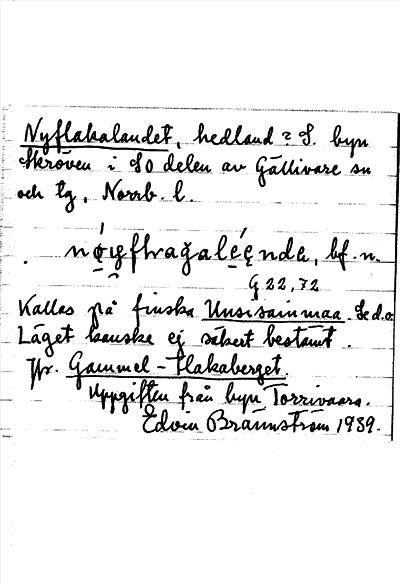 Nyflakalandet, hedland 2 S. byn
Skröven i SO delen av Gällivare sn
och tg, Norrb. l.
bf. n.
G 22, 72
Kallas på finska Unsisainmaa. Se d.o.
Läget kanske ej säkert bestämt.
Jfr. Gammel-Flakaberget.
Uppgiften från byn Torrivaara.
Edvin Brännström 1939.